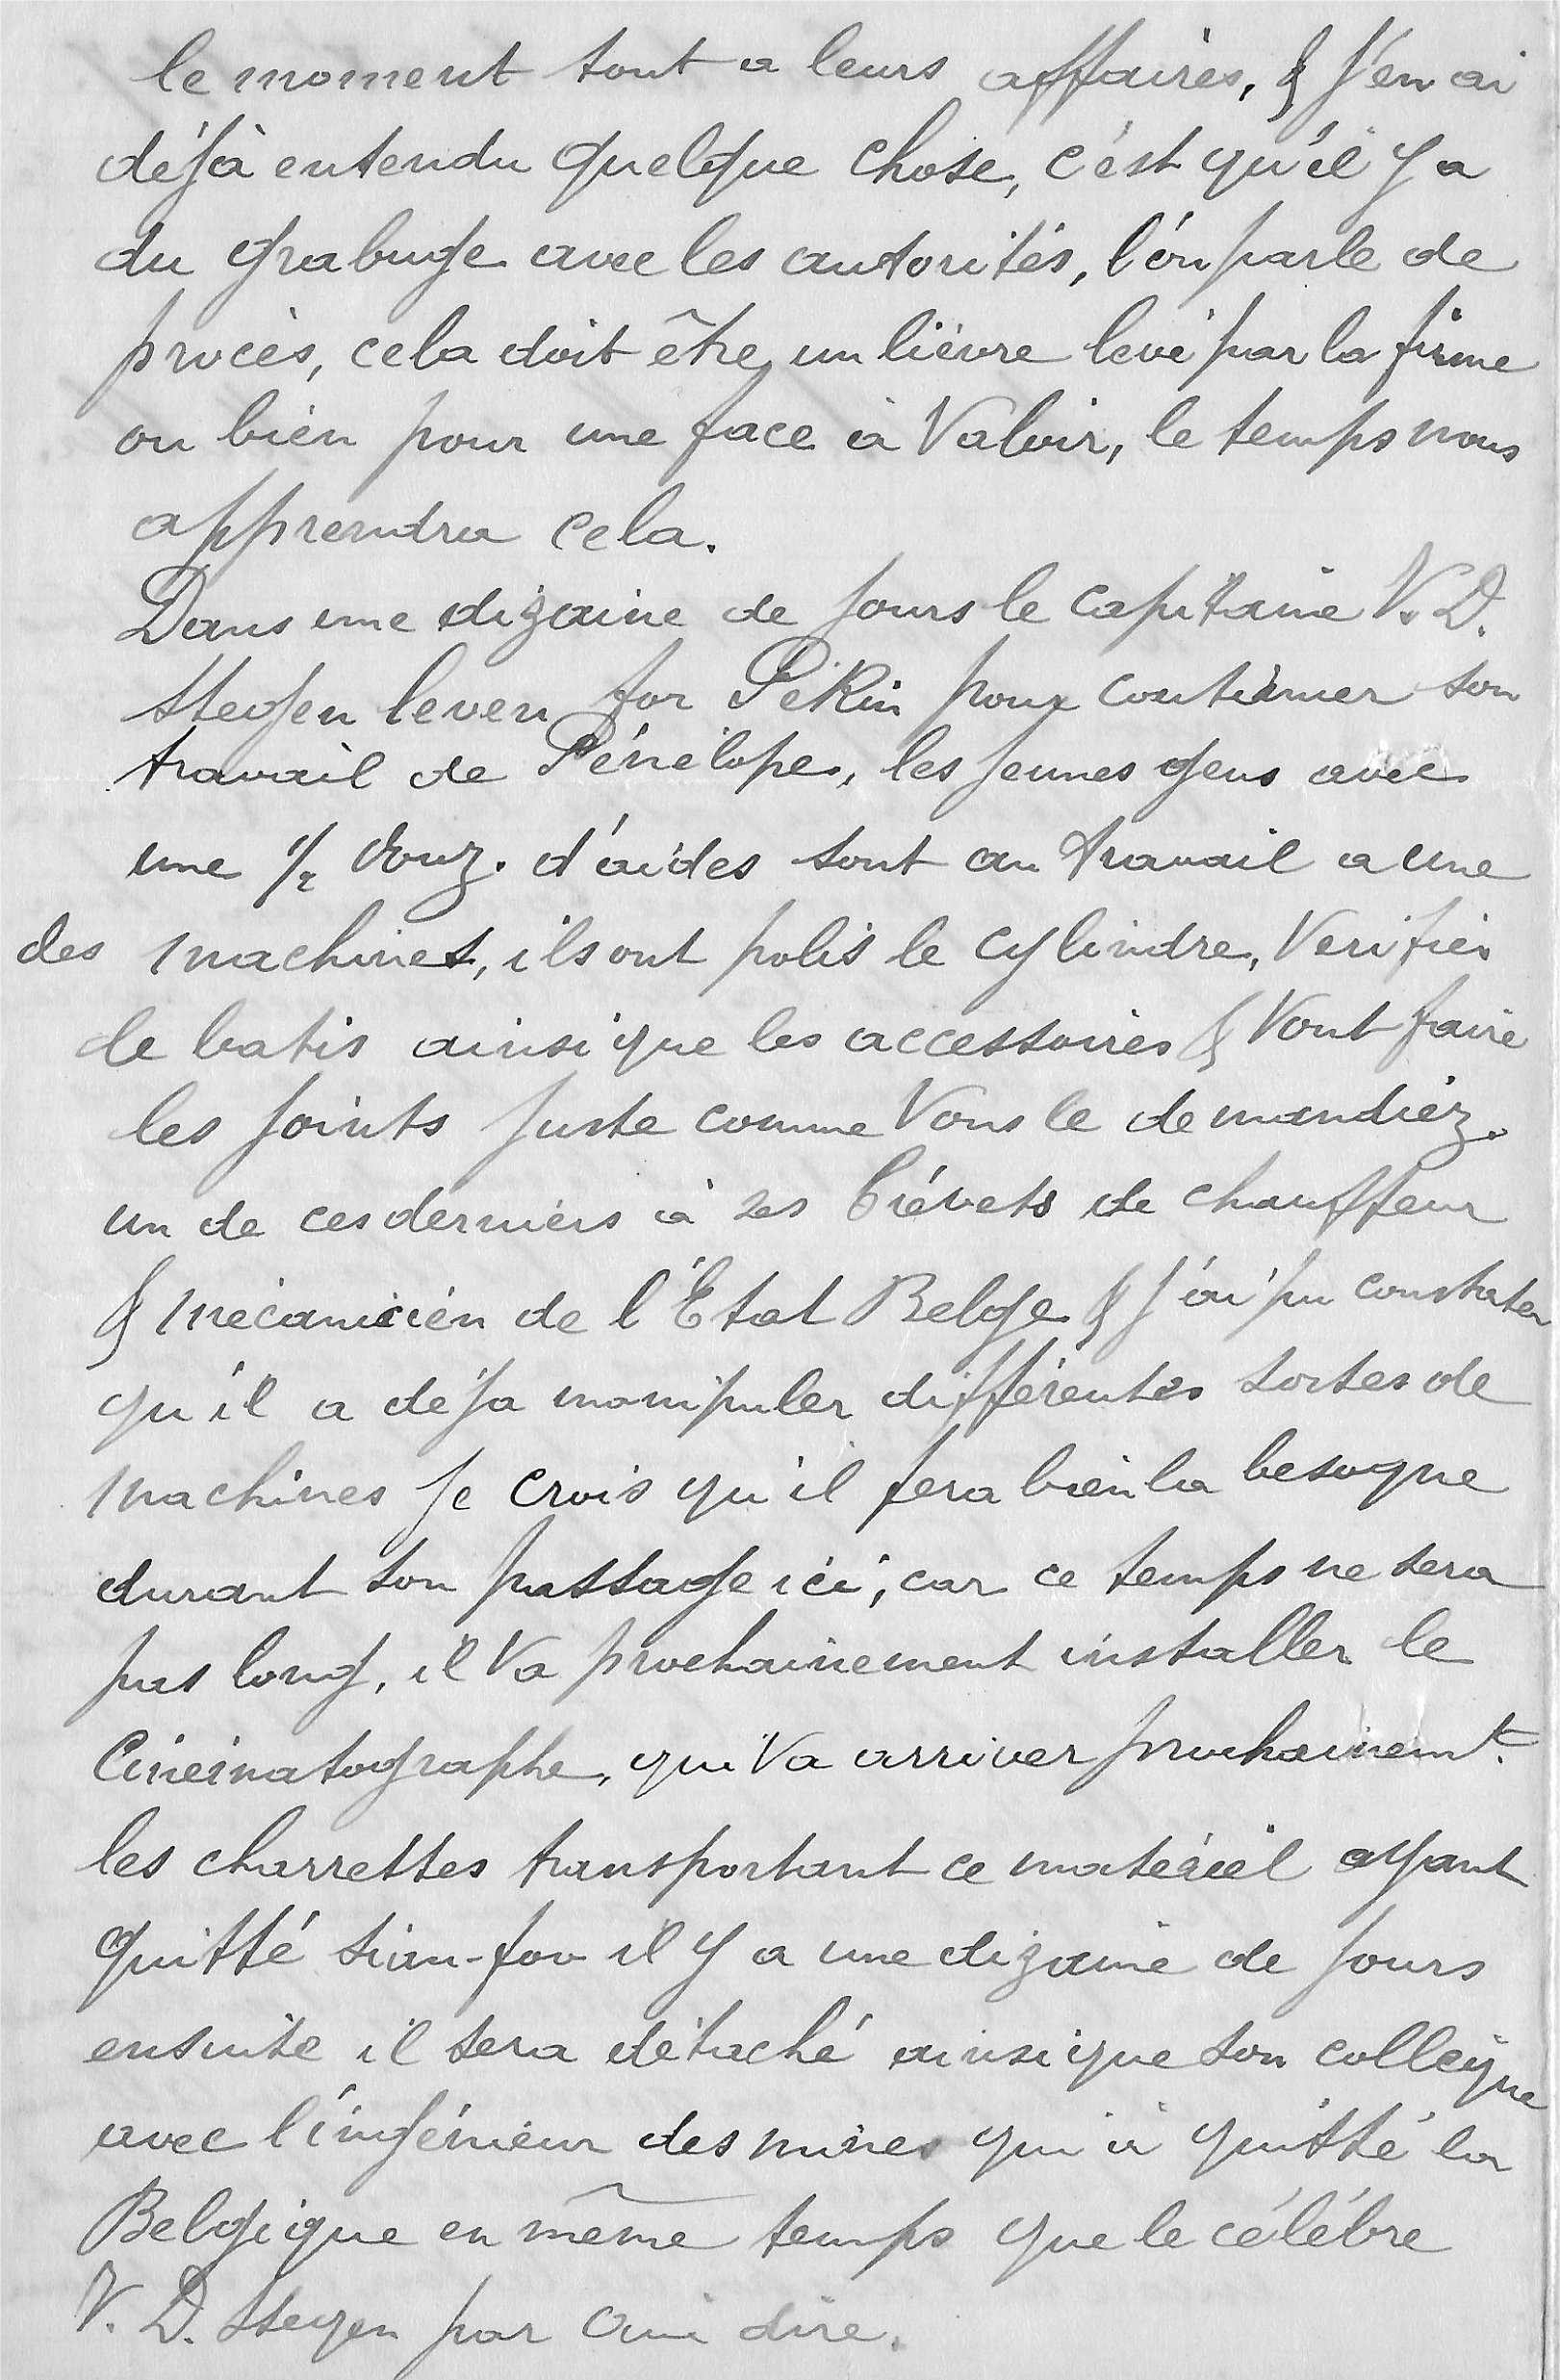 le moment tout a leurs affaires, & j'en ai
déjà entendu quelque chose, c'est qu'il y a
du grabuge avec les autorités, l'on parle de
procès, cela doit être un lièvre levé par la firme
ou bien pour une face à Valoir, le temps nous
apprendra cela.
Dans une dizaine de jours le capitaine V. D.
Stegen leven for Pékin pour continuer son
travail de Pénélope, les jeunes gens avec
une 1/2 douz. d'aides sont au travail a une
des machines, ils ont polis le cylindre, Verifiés
le batis ainsi que les accessoires & Vont faire
les joints juste comme Vous le demandiez.
un de ces derniers à ses brévets de chauffeur
& mécanicien de l'État Belge & j'ai pu constater
qu'il a déja manipuler différentes sortes de
machines je crois qu'il fera bien la besogne
durant son passage ici, car ce temps ne sera
pas long, il Va prochainement installer le
Cinématographe, qui Va arriver prochainemt.
les charrettes transportant ce matériel ayant
quitté Sian-fou il y a une dizaine de jours
ensuite il sera détaché ainsi que son collègue
avec l'ingénieur des mines qui à quitté la
Belgique en même temps que le célébre
V. D. Stegen par Oui dire.